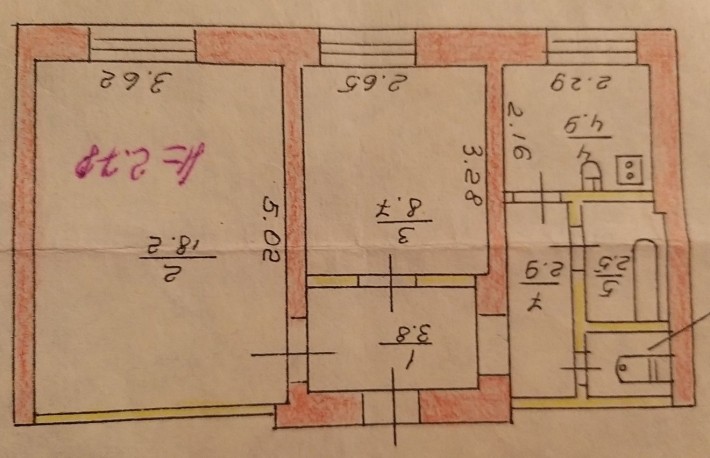 1
3.8
5
2.5
7
2.9
2
18.2
5.02
3
8.7
3.28
4
4.9
2.16
h=2.78
2.29
2.65
3.62